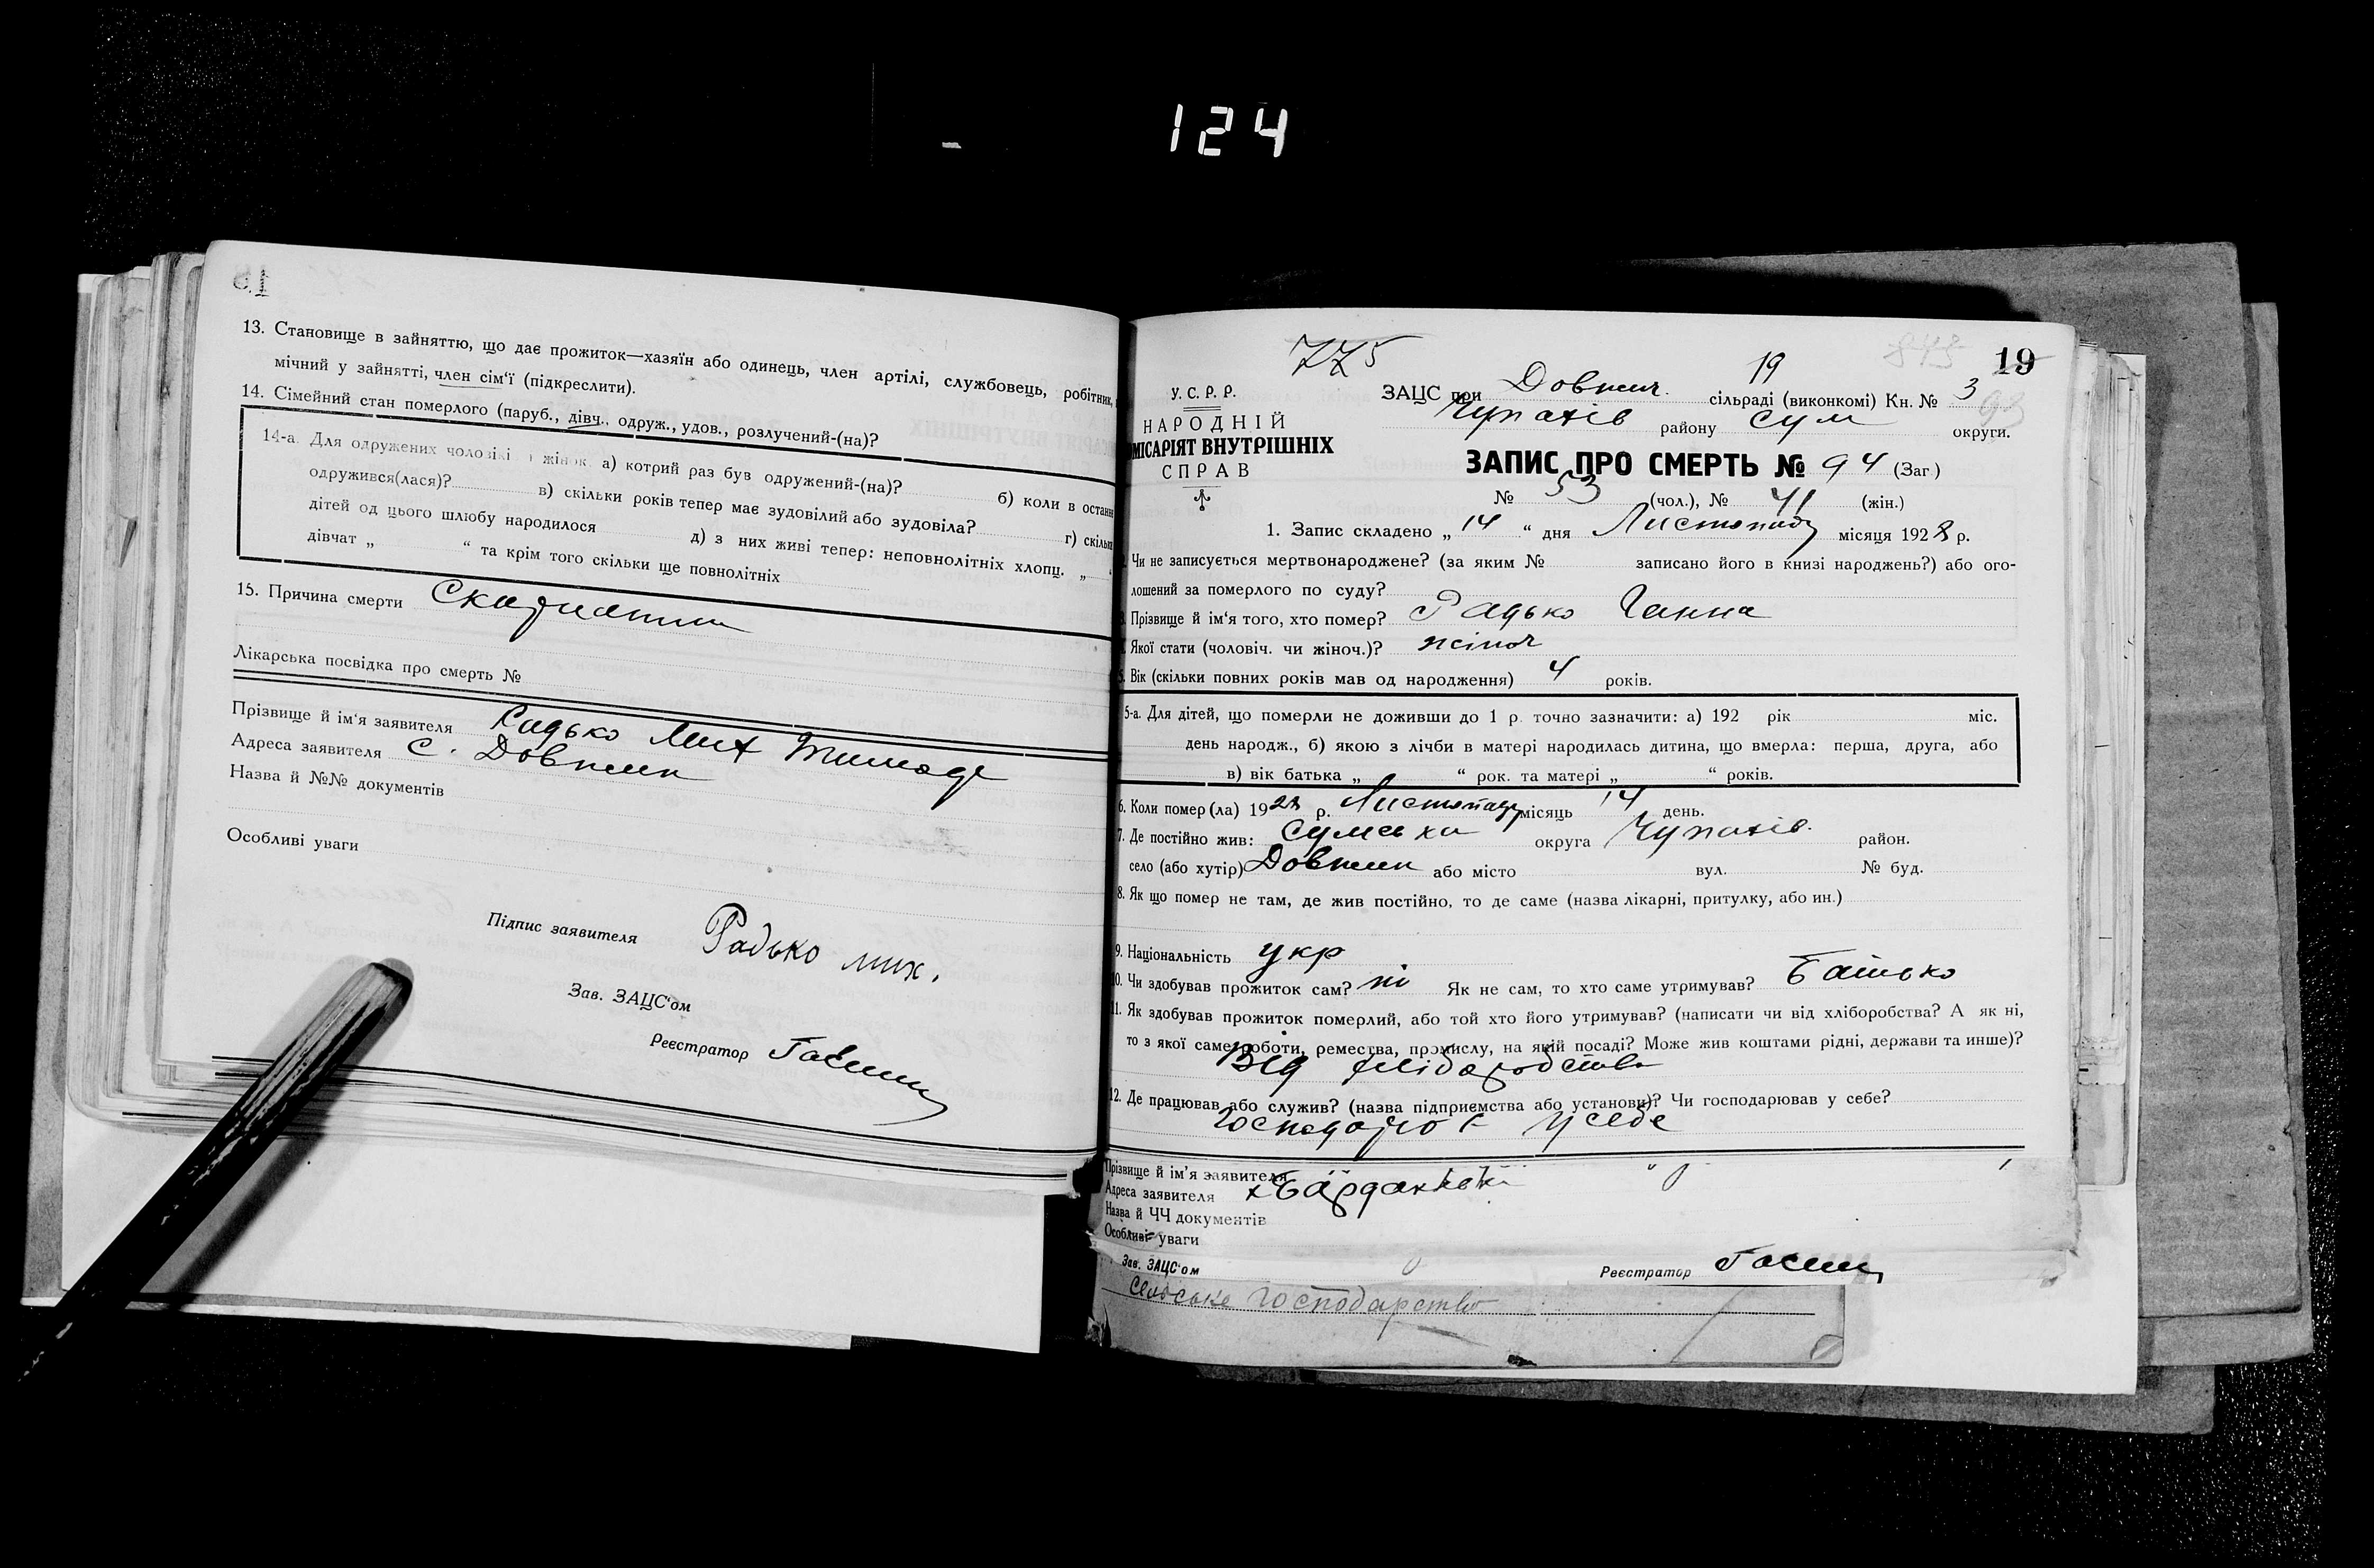 124
13. Становище в зайняттю, що дає прожиток—хазяїн або одинець, член артілі, службовець, робітник,
мічний у зайнятті, член сім'ї (підкреслити).
14. Сімейний стан померлого (паруб., дівч., одруж., удов., розлучений-(на)?
14-а. Для одружених чоловіків і жінок: а) котрий раз був одружений-(на)? б) коли в останн
одружився(лася)? в) скільки років тепер має зудовілий або зудовіла? г) скільк
дітей од цього шлюбу народилося д) з них живі тепер: неповнолітніх хлопц. „
дівчат „ “ та крім того скільки ще повнолітніх
15. Причина смерти Скарлатина
Лікарська посвідка про смерть №
Прізвище й ім'я заявителя Радько Мих
Адреса заявителя С. Довжик
Назва й №№ документів
Особливі уваги
Підпис заявителя Радько мих.
Зав. ЗАЦС'ом
Реєстратор
775 19 19
У. С. Р. Р.
НАРОДНІЙ
МІСАРІЯТ ВНУТРІШНІХ
СПРАВ
ЗАЦС при Довжич. сільраді (виконкомі) Кн. № 3
Чупахів району Сум округи.
ЗАПИС ПРО СМЕРТЬ № 94 (Заг)
№ 53 (чол.), № 41 (жін.)
1. Запис складено „ 14 “ дня Листопаду місяця 1928 р.
Чи не записується мертвонароджене? (за яким № записано його в книзі народжень?) або ого-
лошений за померлого по суду?
Прізвище й ім'я того, хто помер? Радько Ганна
Якої стати (чоловіч. чи жіноч.)? жіноч
Вік (скільки повних років мав од народження) 4 років.
5-а. Для дітей, що померли не доживши до 1 р. точно зазначити: а) 192 рік міс.
день народж., б) якою з лічби в матері народилась дитина, що вмерла: перша, друга, або
в) вік батька „ “ рок. та матері „ “ років.
6. Коли помер (ла) 1928 р. Листопаду місяць 14 день.
7. Де постійно жив: Сумська округа Чупахів. район.
село (або хутір) Довжик або місто вул. № буд.
8. Як що помер не там, де жив постійно, то де саме (назва лікарні, притулку, або ин.)
9. Національність укр
10. Чи здобував прожиток сам? ні Як не сам, то хто саме утримував? Батько
11. Як здобував прожиток померлий, або той хто його утримував? (написати чи від хліборобства? А як ні,
то з якої саме роботи, ремества, промислу, на якій посаді? Може жив коштами рідні, держави та инше)?
Від хліборобства
12. Де працював або служив? (назва підприємства або установи)? Чи господарював у себе?
Господарює у себе
Прізвище й ім'я заявителя
Адреса заявителя
Назва й ЧЧ документів
Особливі уваги
Зав. ЗАЦС'ом
Реєстратор
Сельське господарство